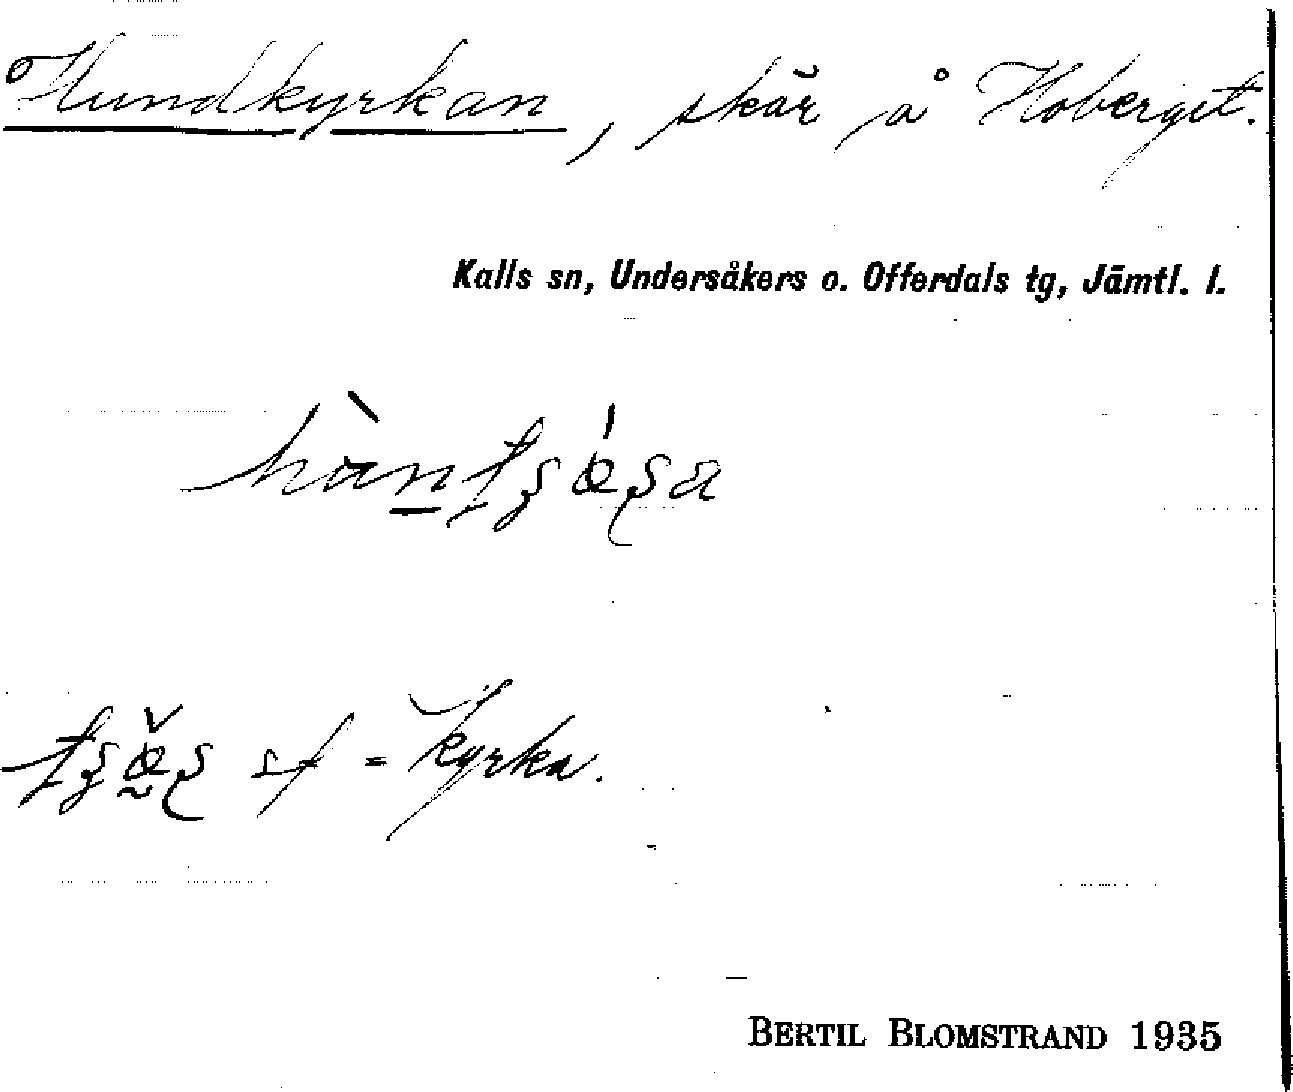 °Hundkyrkan, skär å Hoberget.
Kalls sn, Undersåkers o. Offerdals tg, Jämtl. l.
sf = kyrka.
BERTIL BLOMSTRAND 1935